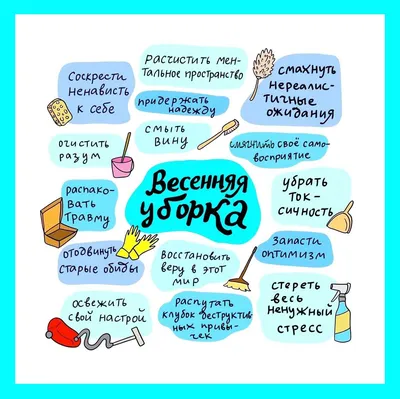 Соскрести
ненависть
к себе
расчистить мен-
тальное пространство
смахнуть
нереалис-
тичные
ожидания
придержать
надежду
очистить
разум
смыть
вину
смягчить своё само-
восприятие
Весенняя
уборка
распако-
вать
травму
убрать
ток-
сичность
отодвинуть
старые обиды
восстановить
веру в этот
мир
Запасти
оптимизм
освежить
свой настрой
распутать
клубок деструктив
ных привы-
чек
стереть
весь
ненужный
стресс